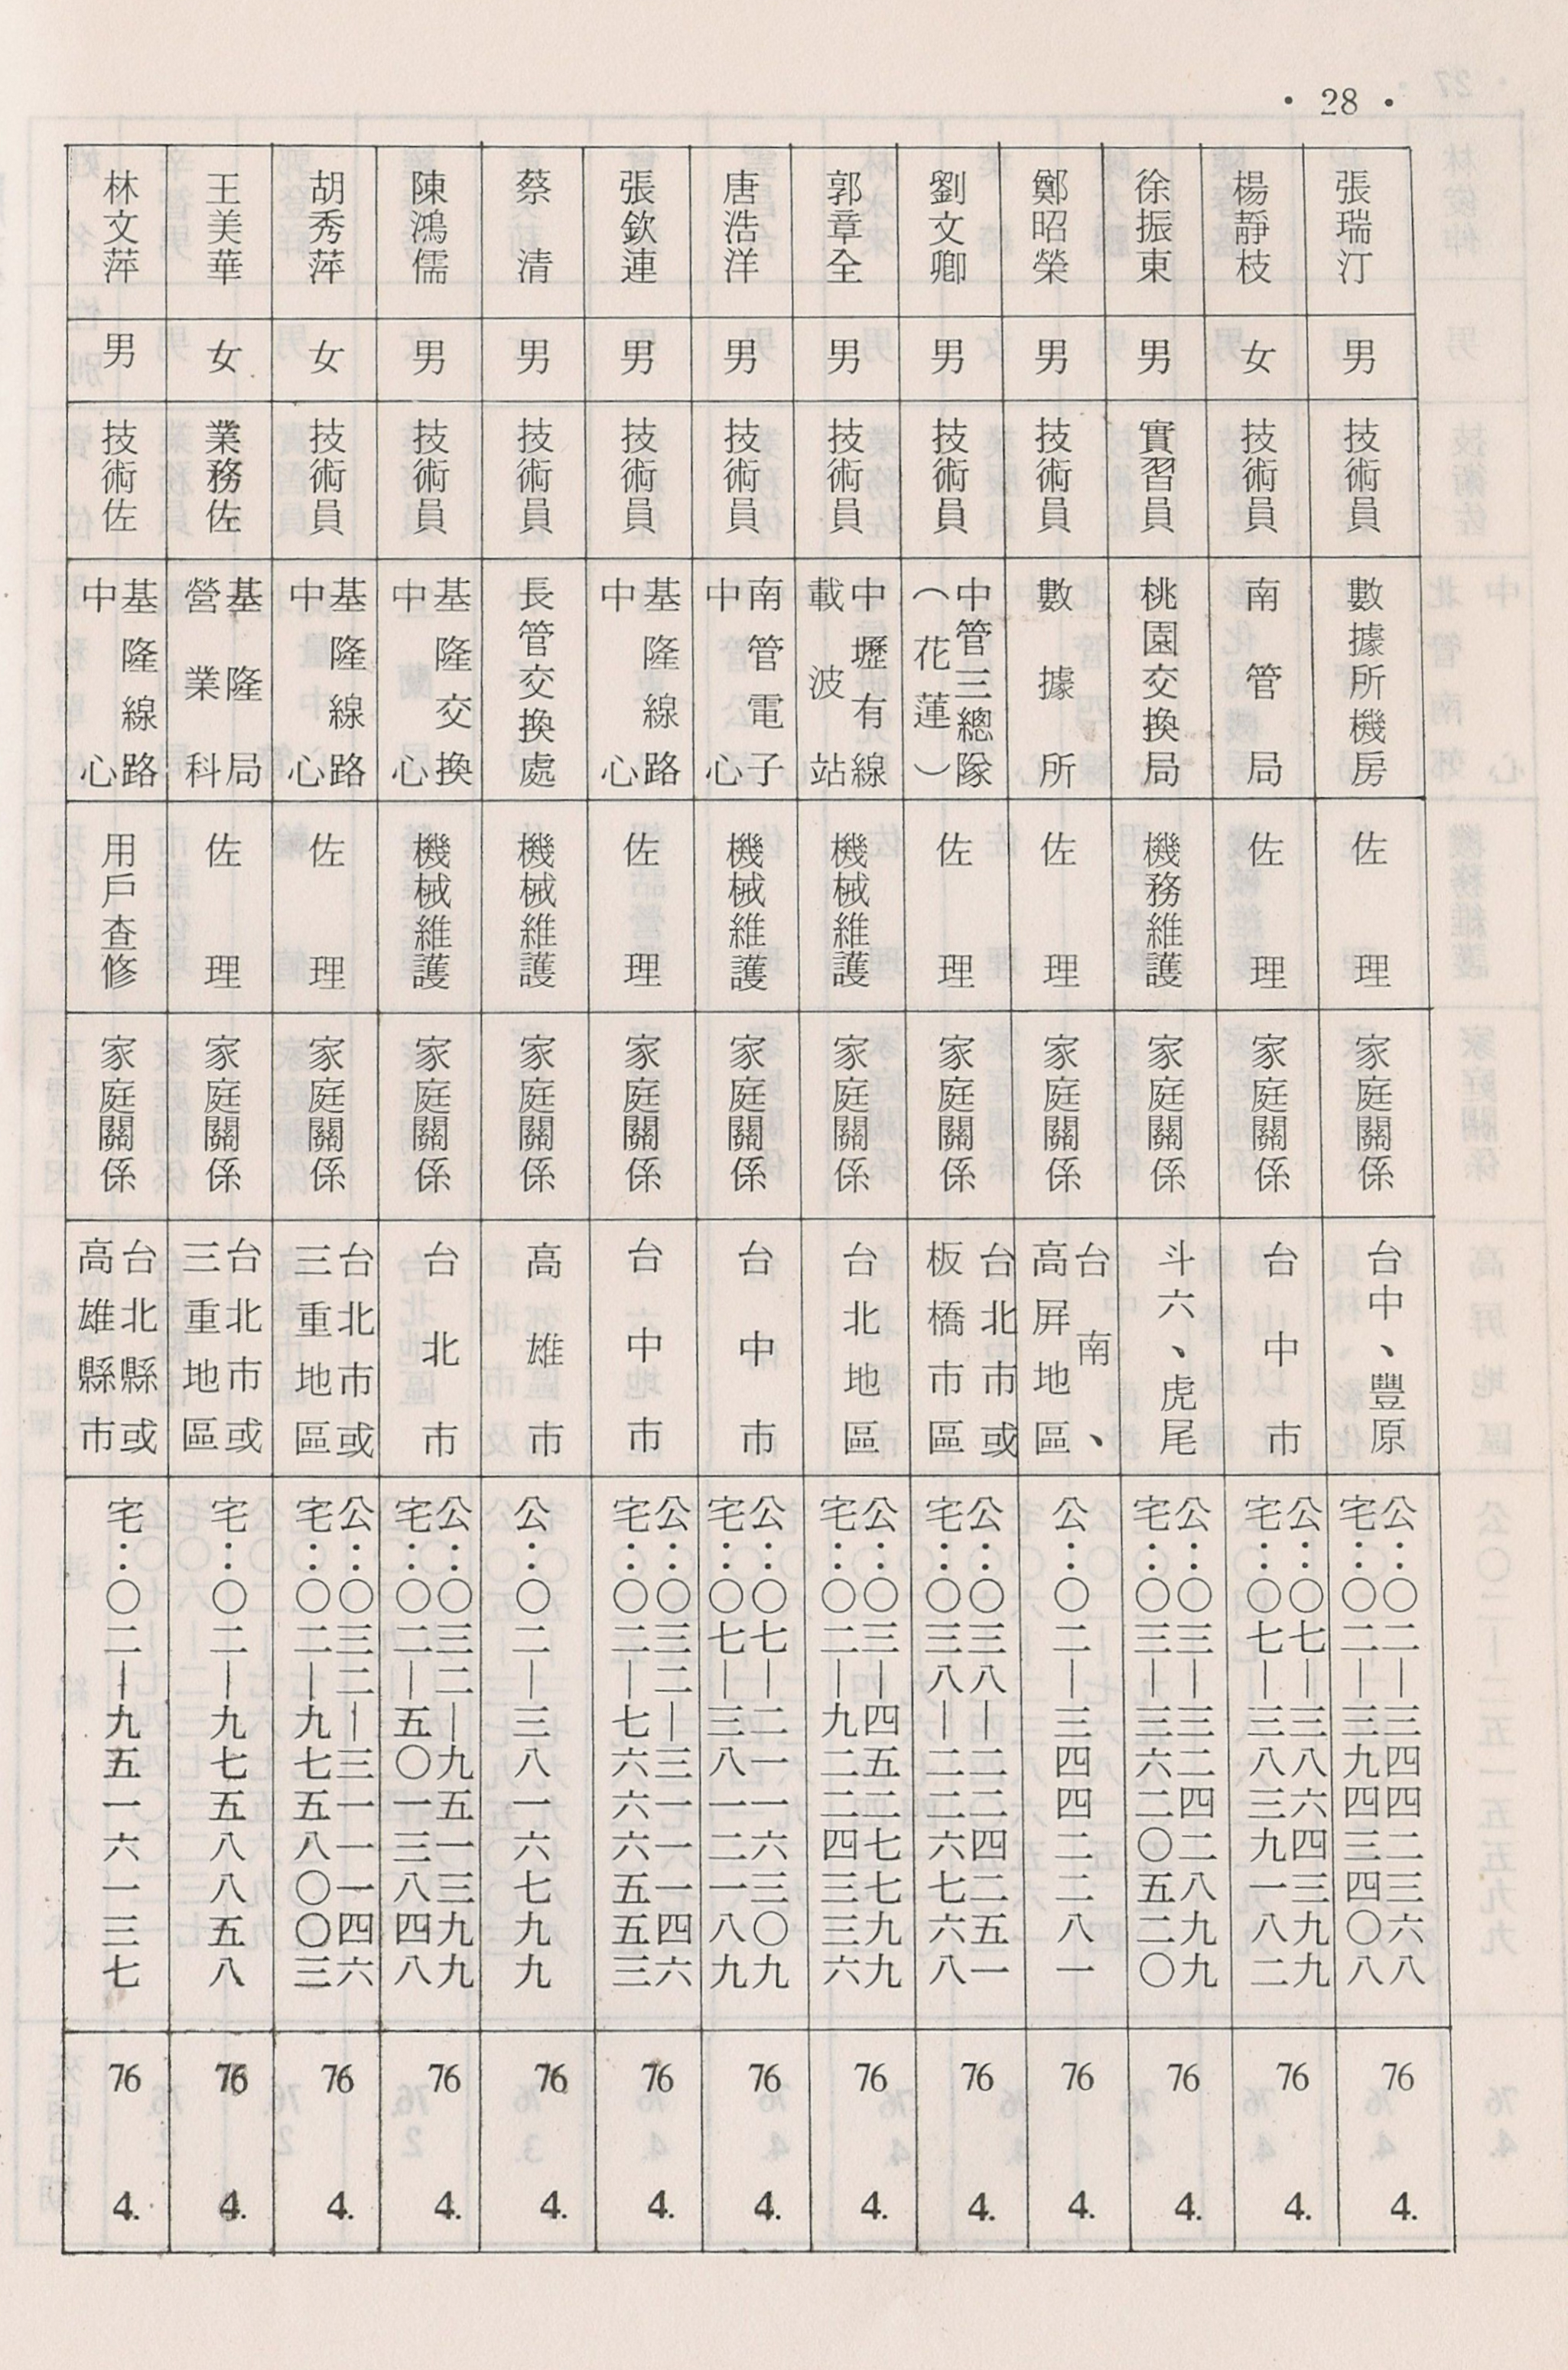 • 28 •
張瑞汀
男
技術員
數據所機房
佐理
家庭關係
台中、豐原
公:〇二—三四四二三六八
宅:〇二—三九四三四〇八
76 4.
楊靜枝
女
技術員
南管局
佐理
家庭關係
台中市
公:〇七—三八六四三九九
宅:〇七—三八三九一八二
76 4.
徐振東
男
實習員
桃園交換局
機務維護
家庭關係
斗六、虎尾
公:〇三—三二四二八九九
宅:〇三—三六二〇五二〇
76 4.
鄭昭榮
男
技術員
數據所
佐理
家庭關係
台南、
高屏地區
公:〇二—三四四二二八一
76 4.
劉文卿
男
技術員
中管三總隊
(花蓮)
佐理
家庭關係
台北市或
板橋市區
公:〇三八—二二四二五一
宅:〇三八—二二六七六八
76 4.
郭章全
男
技術員
中壢有線
載波站
機械維護
家庭關係
台北地區
公:〇三—四五二七七九九
宅:〇二—九二二四三三六
76 4.
唐浩洋
男
技術員
南管電子
中心
機械維護
家庭關係
台中市
公:〇七—二一一六三〇九
宅:〇七—三八一二一八九
76 4.
張欽連
男
技術員
基隆線路
中心
佐理
家庭關係
台中市
公:〇三二—三一一一四六
宅:〇二—七六六六五五三
76 4.
蔡清
男
技術員
長管交換處
機械維護
家庭關係
高雄市
公:〇二—三八一六七九九
76 4.
陳鴻儒
男
技術員
基隆交換
中心
機械維護
家庭關係
台北市
公:〇三二—九五一三九九
宅:〇二—五〇一三八四八
76 4.
胡秀萍
女
技術員
基隆線路
中心
佐理
家庭關係
台北市或
三重地區
公:〇三二—三一一一四六
宅:〇二—九七五八〇〇三
76 4.
王美華
女
業務佐
基隆局
營業科
佐理
家庭關係
台北市或
三重地區
宅:〇二—九七五八八五八
76 4.
林文萍
男
技術佐
基隆線路
中心
用戶查修
家庭關係
台北縣或
高雄縣市
宅:〇二—九五一六一三七
76 4.